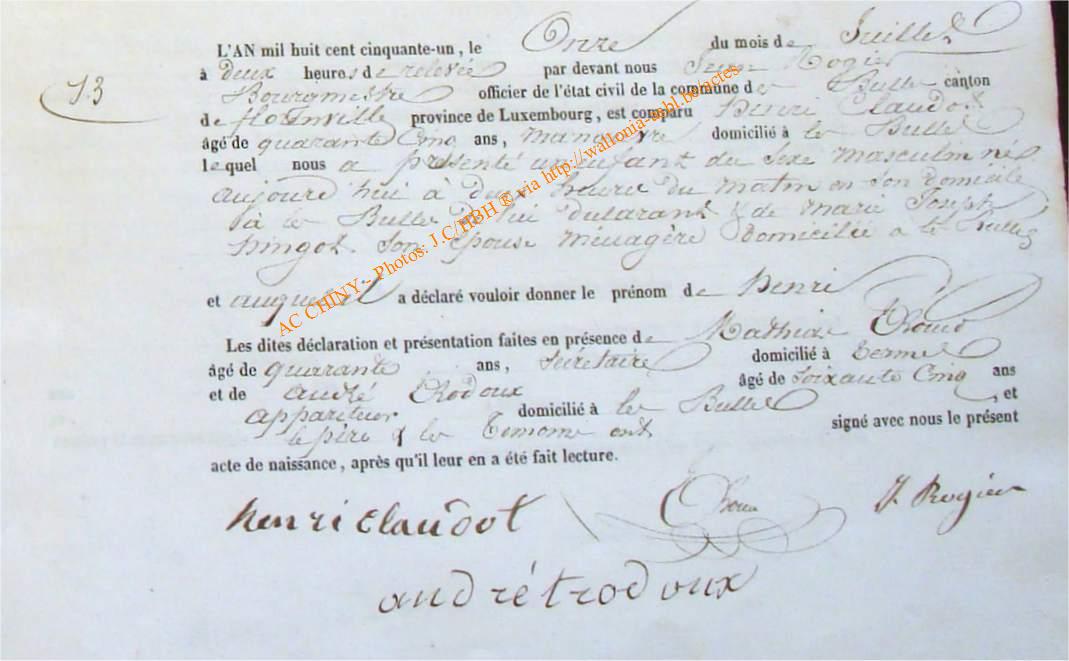 13
L'AN mil huit cent cinquante-un, le Onze du mois de Juillet
à deux heures de relevée par devant nous Jean Rogier
Bourgmestre officier de l'état civil de la commune de Bulles canton
de florenville province de Luxembourg, est comparu henri Claudot
âgé de quarante Cinq ans, manœuvre domicilié à les Bulles
lequel nous a présenté un enfant du Sexe masculin né
aujourd hui à deux heure du matin en Son domicile
à les Bulles de lui déclarant & de marie Joseph
hingot Son épouse ménagère domiciliée a les Bulles
et auquel il a déclaré vouloir donner le prénom de henri
Les dites déclaration et présentation faites en présence de Mathieu
âgé de quarante ans, Secrétaire domicilié à termes
et de André trodoux âgé de Soixante Cinq ans
appariteur domicilié à les Bulles, et
le père & les temoins ont signé avec nous le présent
acte de naissance, après qu'il leur en a été fait lecture.
henri claudot J. Rogier
andré trodoux
AC CHINY - Photos: J.C/HBH ® via http://wallonia-asbl.be/actes